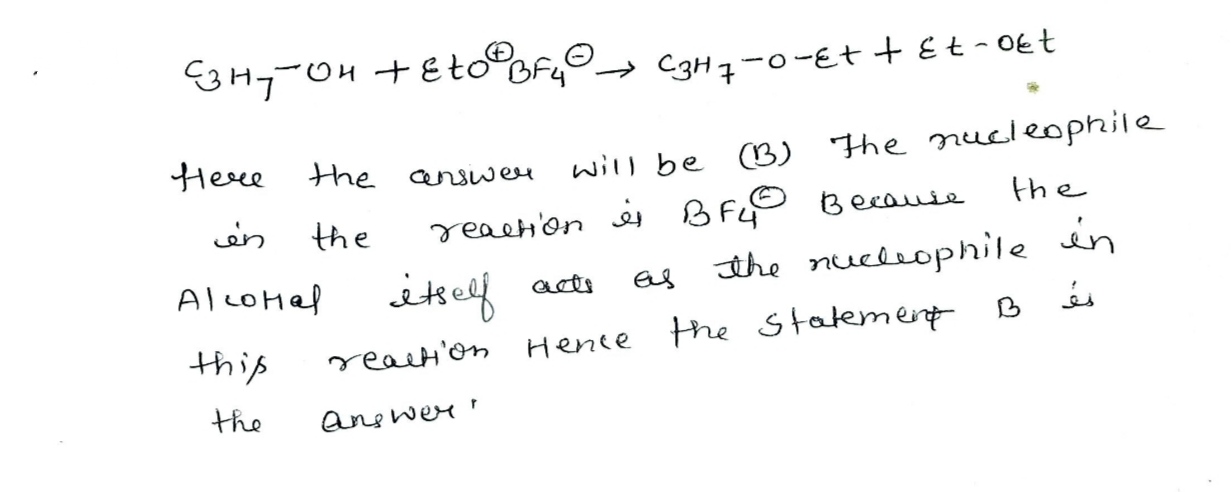 C3H7-OH + EtO⊕BF4⊖ → C3H7-O-Et + Et-OEt
Here the answer will be (B) The nucleophile
in the reaction is BF4⊖ Because the
Alcohal itself acts as the nucleophile in
this reaction Hence the statement B is
the answer.